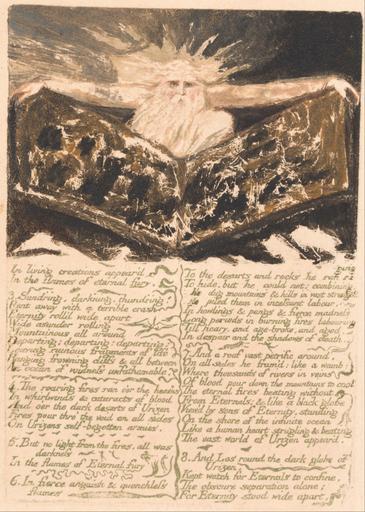 In living creations appear'd
In the flames of eternal fury.
3. Sund'ring, dark'ning, thund'ring!
Rent away with a terrible crash
Eternity roll'd wide apart
Wide asunder rolling
Mountainous all around
Departing; departing; departing:
Leaving ruinous fragments of life
Hanging frowning cliffs & all between
An ocean of voidness unfathomable.
4. The roaring fires ran o'er the heav'ns
In whirlwinds & cataracts of blood
And o'er the dark desarts of Urizen
Fires pour thro' the void on all sides
On Urizens self-begotten armies.
5. But no light from the fires. all was
darkness
In the flames of Eternal fury
6. In fierce anguish & quenchless
flames
To the desarts and rocks He ran raging
To hide, but He could not: combining
He dug mountains & hills in vast strength
He piled them in incessant labour,
In howlings & pangs & fierce madness
Long periods in burning fires labouring
Till hoary, and age-broke, and aged,
In despair and the shadows of death.
7. And a roof vast petrific around,
On all sides He fram'd: like a womb;
Where thousands of rivers in veins
Of blood pour down the mountains to cool
The eternal fires beating without
From Eternals; & like a black globe
View'd by sons of Eternity, standing
On the shore of the infinite ocean
Like a human heart strugling & beating
The vast world of Urizen appear'd.
8. And Los round the dark globe of
Urizen,
Kept watch for Eternals to confine,
The obscure separation alone;
For Eternity stood wide apart,